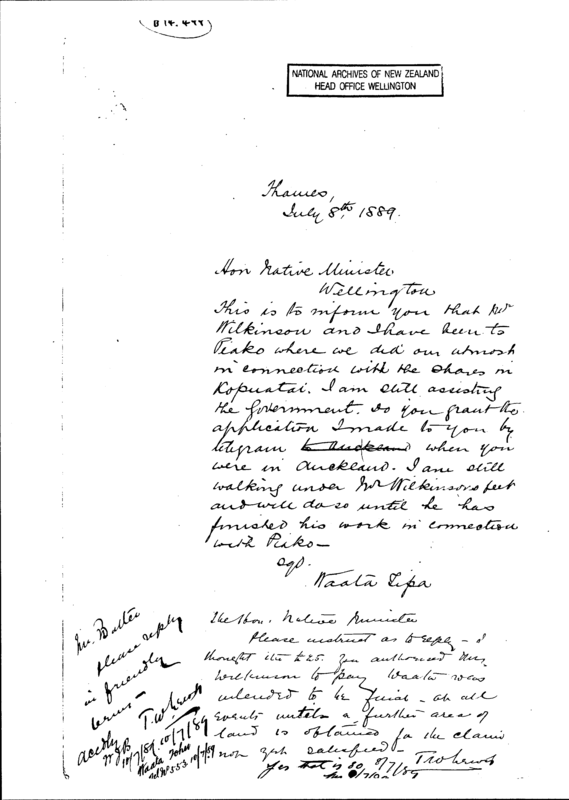 B 14.499
NATIONAL ARCHIVES OF NEW ZEALAND
HEAD OFFICE WELLINGTON
Thames,
July 8th, 1889.
Hon Native Minister
Wellington
This is to inform you that Mr
Wilkinson and I have been to
Piako where we did our utmost
in connection with the shares in
Kopuatai. I am still assisting
the Government. Do you grant the
application I made to you by
telegram to Auckland when you
were in Auckland. I am still
walking under Mr Wilkinsons feet
and will do so until he has
finished his work in connection
with Piako—
sgd.
Waata Tipa
The Hon. Native Minister
Please instruct as to reply – I
thought the £25. you authorised Mr
Wilkinson to pay Waata was
intended to be final – at all
events until a further area of
land is obtained for the claims
not yet satisfied – T W Lewis
8/7/89
Yes that is so,
Mr. Butler
Please reply
in friendly
terms –
T.W. Lewis
10/7/89
accdly
WJB
10/7/89
Waata John
10/7/89